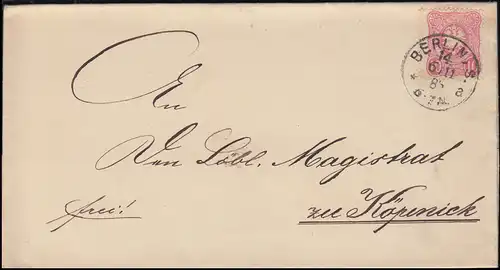 BERLIN, S.
14.
6 11
8
6-7 N.
An
Den Löbl. Magistrat
frei!
zu Köpenick